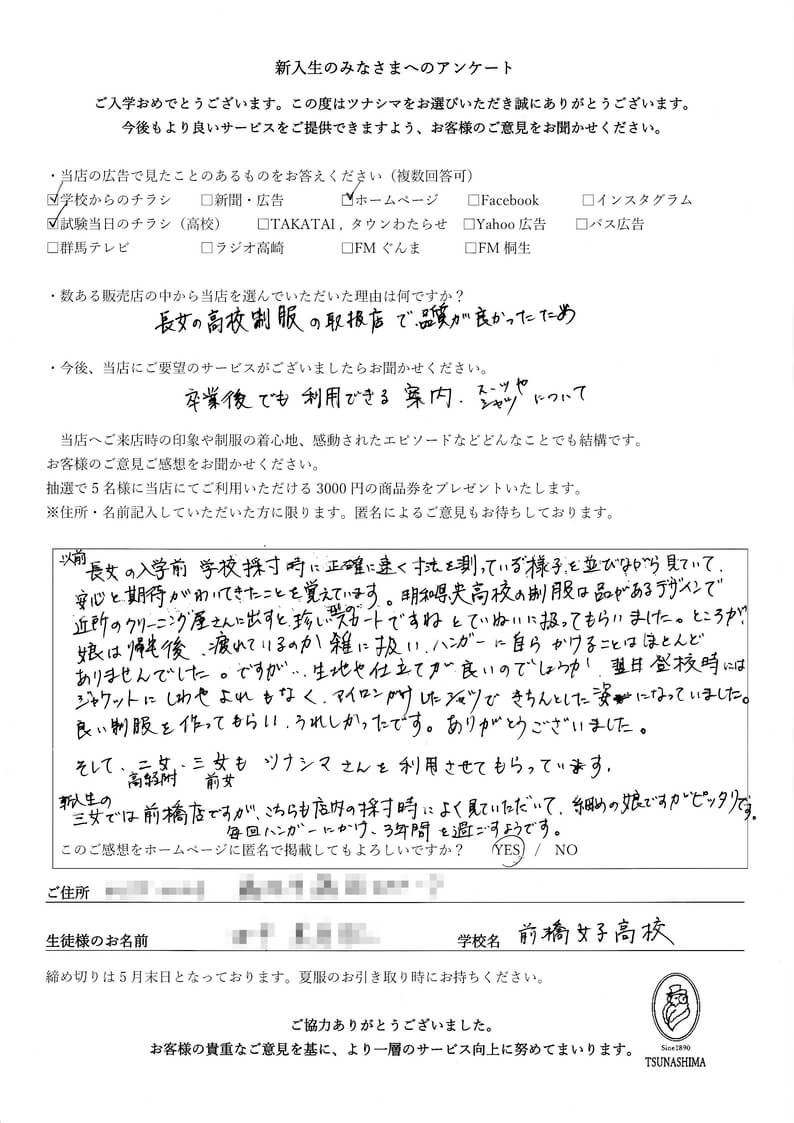 新入生のみなさまへのアンケート
ご入学おめでとうございます。この度はツナシマをお選びいただき誠にありがとうございます。
今後もより良いサービスをご提供できますよう、お客様のご意見をお聞かせください。
・当店の広告で見たことのあるものをお答えください（複数回答可）
☑学校からのチラシ □新聞・広告 ☑ホームページ □Facebook □インスタグラム
☑試験当日のチラシ（高校） □TAKATAI , タウンわたらせ □Yahoo 広告 □バス広告
□群馬テレビ □ラジオ高崎 □FM ぐんま □FM 桐生
・数ある販売店の中から当店を選んでいただいた理由は何ですか？
長女の高校制服の取扱店で品質が良かったため
・今後、当店にご要望のサービスがございましたらお聞かせください。
卒業後でも利用できる案内、スーツやシャツについて
当店へご来店時の印象や制服の着心地、感動されたエピソードなどどんなことでも結構です。
お客様のご意見ご感想をお聞かせください。
抽選で 5 名様に当店にてご利用いただける 3000 円の商品券をプレゼントいたします。
※住所・名前記入していただいた方に限ります。匿名によるご意見もお待ちしております。
以前長女の入学前 学校採寸時に正確に速く寸法を測っている様子を並びながら見ていて、
安心と期待がわいてきたことを覚えています。明和県央高校の制服は品があるデザインで
近所のクリーニング屋さんに出すと、珍しい型のスカートですねとていねいに扱ってもらいました。ところが、
娘は帰宅後、疲れているのか雑に扱い、ハンガーに自らかけることはほとんど
ありませんでした。ですが…生地や仕立てが良いのでしょうか、翌日登校時には
ジャケットにしわやよれもなく、アイロンがけしたシャツできちんとした姿になっていました。
良い制服を作ってもらい、うれしかったです。ありがとうございました。
そして、二女、三女もツナシマさんを利用させてもらっています。
高経附 前女
新入生の三女では前橋店ですが、こちらも店内の採寸時によく見ていただいて、細めの娘ですがピッタリです。
毎回ハンガーにかけ、3年間を過ごすようです。
このご感想をホームページに匿名で掲載してもよろしいですか？ YES / NO
ご住所
生徒様のお名前 学校名 前橋女子高校
締め切りは 5 月末日となっております。夏服のお引き取り時にお持ちください。
ご協力ありがとうございました。
お客様の貴重なご意見を基に、より一層のサービス向上に努めてまいります。
Sine1890
TSUNASHIMA